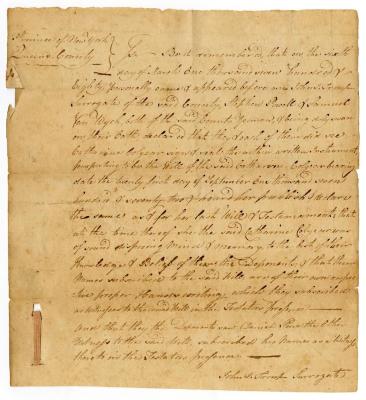 Province of New York
Queens County
Ss. Be it remembered, that on the sixth
day of March One thousand seven hundred &
eighty Personally came & appeared before me John S. Troup
Surrogate of the said County, Stephen Powell & Samuel
Van Wyck both of the said County Yeomen, & being duly sworn
on their Oath declared that they & each of them did see
Catharine Colyer sign & seal the written Instrument
purporting to be the Will of the said Catharine Colyer bearing
date the twenty first day of September One thousand seven
hundred & seventy two, & heard her publish & declare
the same as & for her last Will & Testament, that
at the time thereof she the said Catharine Colyer was
of sound disposing Mind & memory to the best of their
Knowledge & Belief of them the Deponents & that their
Names subscribed to the said Will are of their own respec
tive proper Hands writing which they subscribed
as Witnesses to the said Will in the Testators presence
And that they the Deponents saw Daniel the other
Witness to the said Will, subscribe his Name as a Witness
thereto in the Testators presence
John S. Troup Surrogate